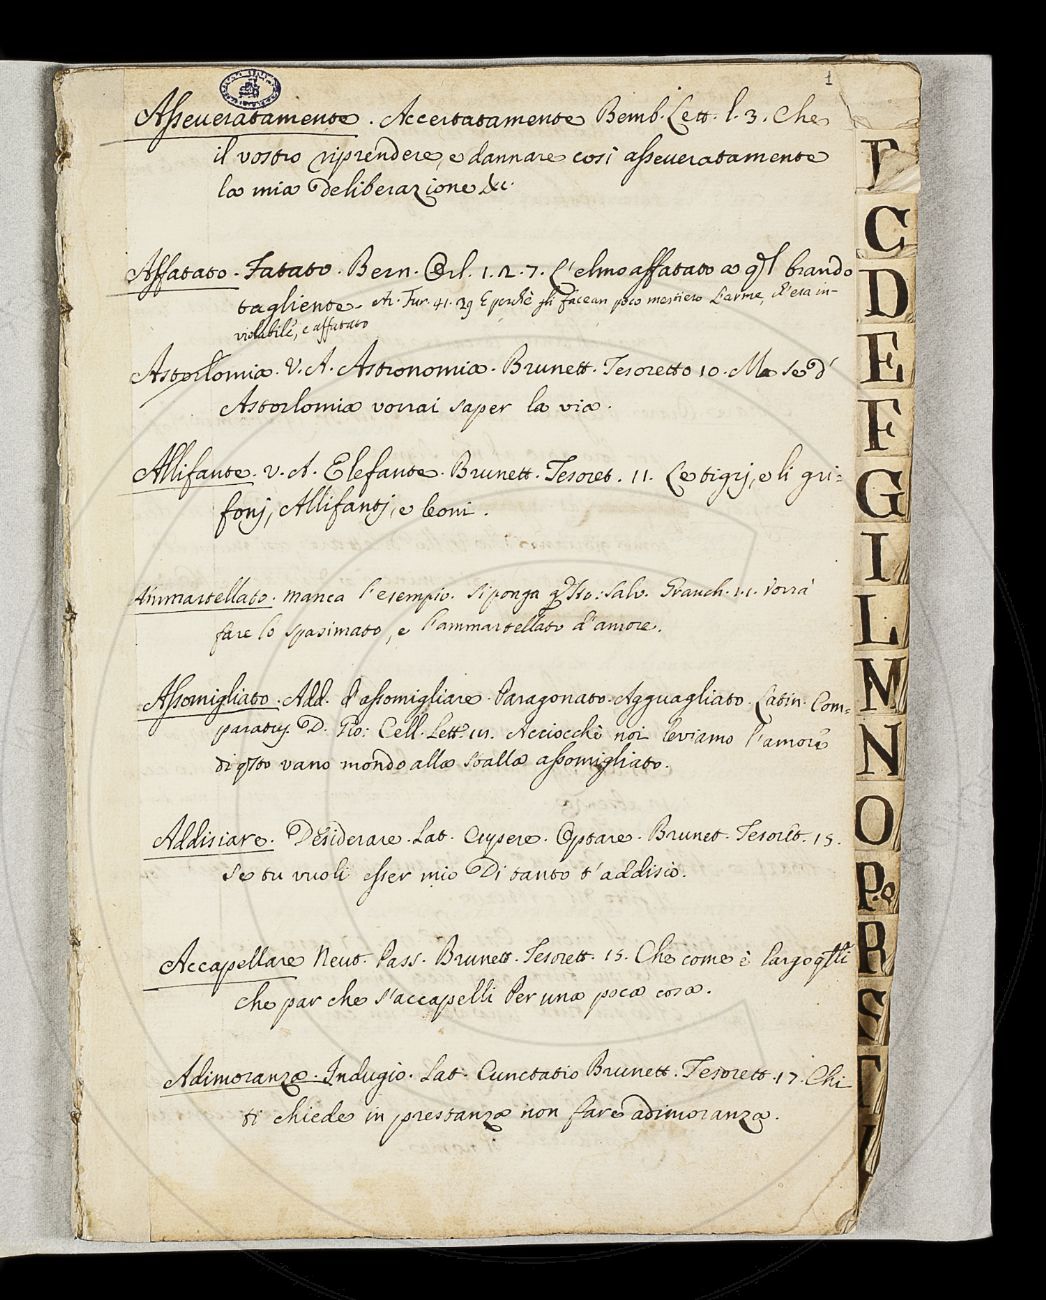 1
Asseveratamente. Accertatamente Bemb. Lett. l. 3. Che
il vostro riprendere, e dannare così asseveratamente
la mia deliberazione &c.
Affatato. Fatato. Bern. Orl. 1. 2. 7. L'elmo affatato a ql brando
tagliente. Ar. Fur. 41. 29 E perchè gli facean poco mestiero L'arme, ch'era in-
violabile, e affatato
Astorlomia. V. A. Astronomia. Brunett. Tesoretto 10. Ma se d'
Astorlomia vorrai saper la via.
Allifante. V. A. Elefante. Brunett. Tesoret. 11. Le tigrj, e li gri=
fonj, Allifantj, e leoni.
Ammartellato. manca l'esempio. si ponga qsto: Salv. Granch. 1.1. Vorrà
fare lo spasimato, e l'ammartellato d'amore.
Assomigliato. Add. d'assomigliare. Paragonato. Agguagliato. Latin. Com=
paratus. D. Gio: Cell. Lett. Acciocchè noi leviamo l'amore
di qsto vano mondo alla stalla assomigliato.
Addisiare. Desiderare. Lat. Cupere. Optare. Brunet. Tesorett. 15.
Se tu vuoli esser mio Di tanto t'addiscio.
Accapellare Neut. Pass. Brunett. Tesorett. 15. Che come è largo qlli
che par che s'accapelli Per una poca cosa.
Adimoranza. Indugio. Lat. Cunctatio Brunett. Tesorett. 17. Chi
ti chiede in prestanza non fare adimoranza.
C
D
E
F
G
I
L
M
N
O
P.Q
R
S
T